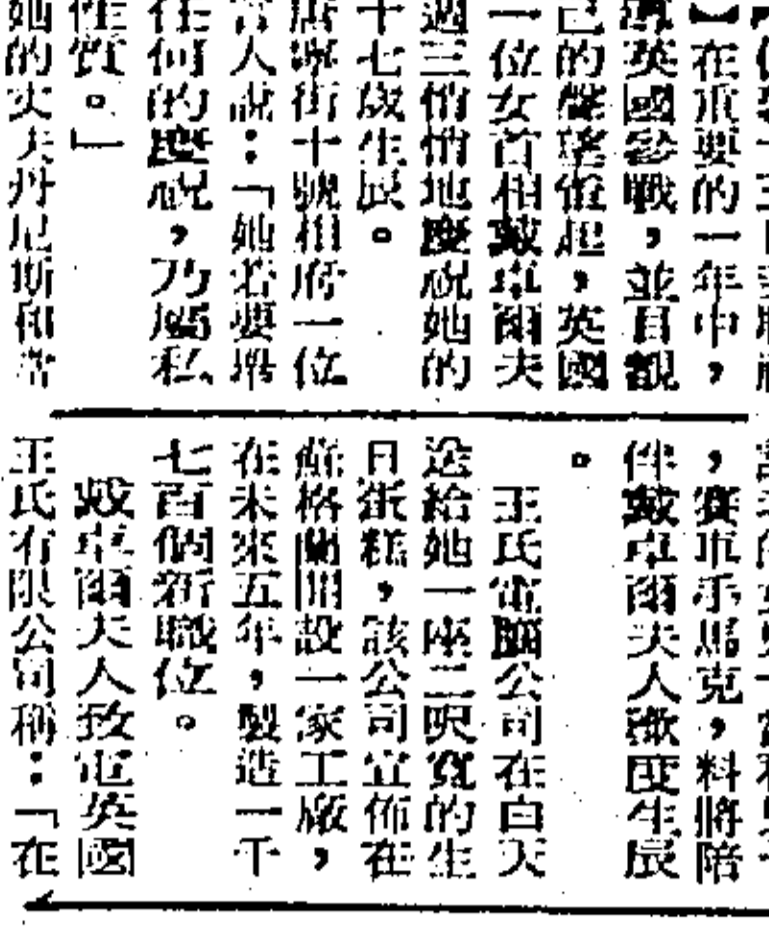 】在重要的一年中，
英國參戰，並目覩
己的聲望崛起，英國
一位女首相戴卓爾夫
週三悄悄地慶祝她的
十七歲生辰。
唐寧街十號相府一位
言人說：「她若要舉
任何的慶祝，乃屬私
性質。」
她的丈夫丹尼斯和
，賽車手馬克，料將陪
伴戴卓爾夫人歡度生辰
。
王氏電腦公司在白天
送給她一座二呎寬的生
日蛋糕，該公司宣佈在
蘇格蘭開設一家工廠，
在未來五年，製造一千
七百個新職位。
戴卓爾夫人致電英國
王氏有限公司稱：「在